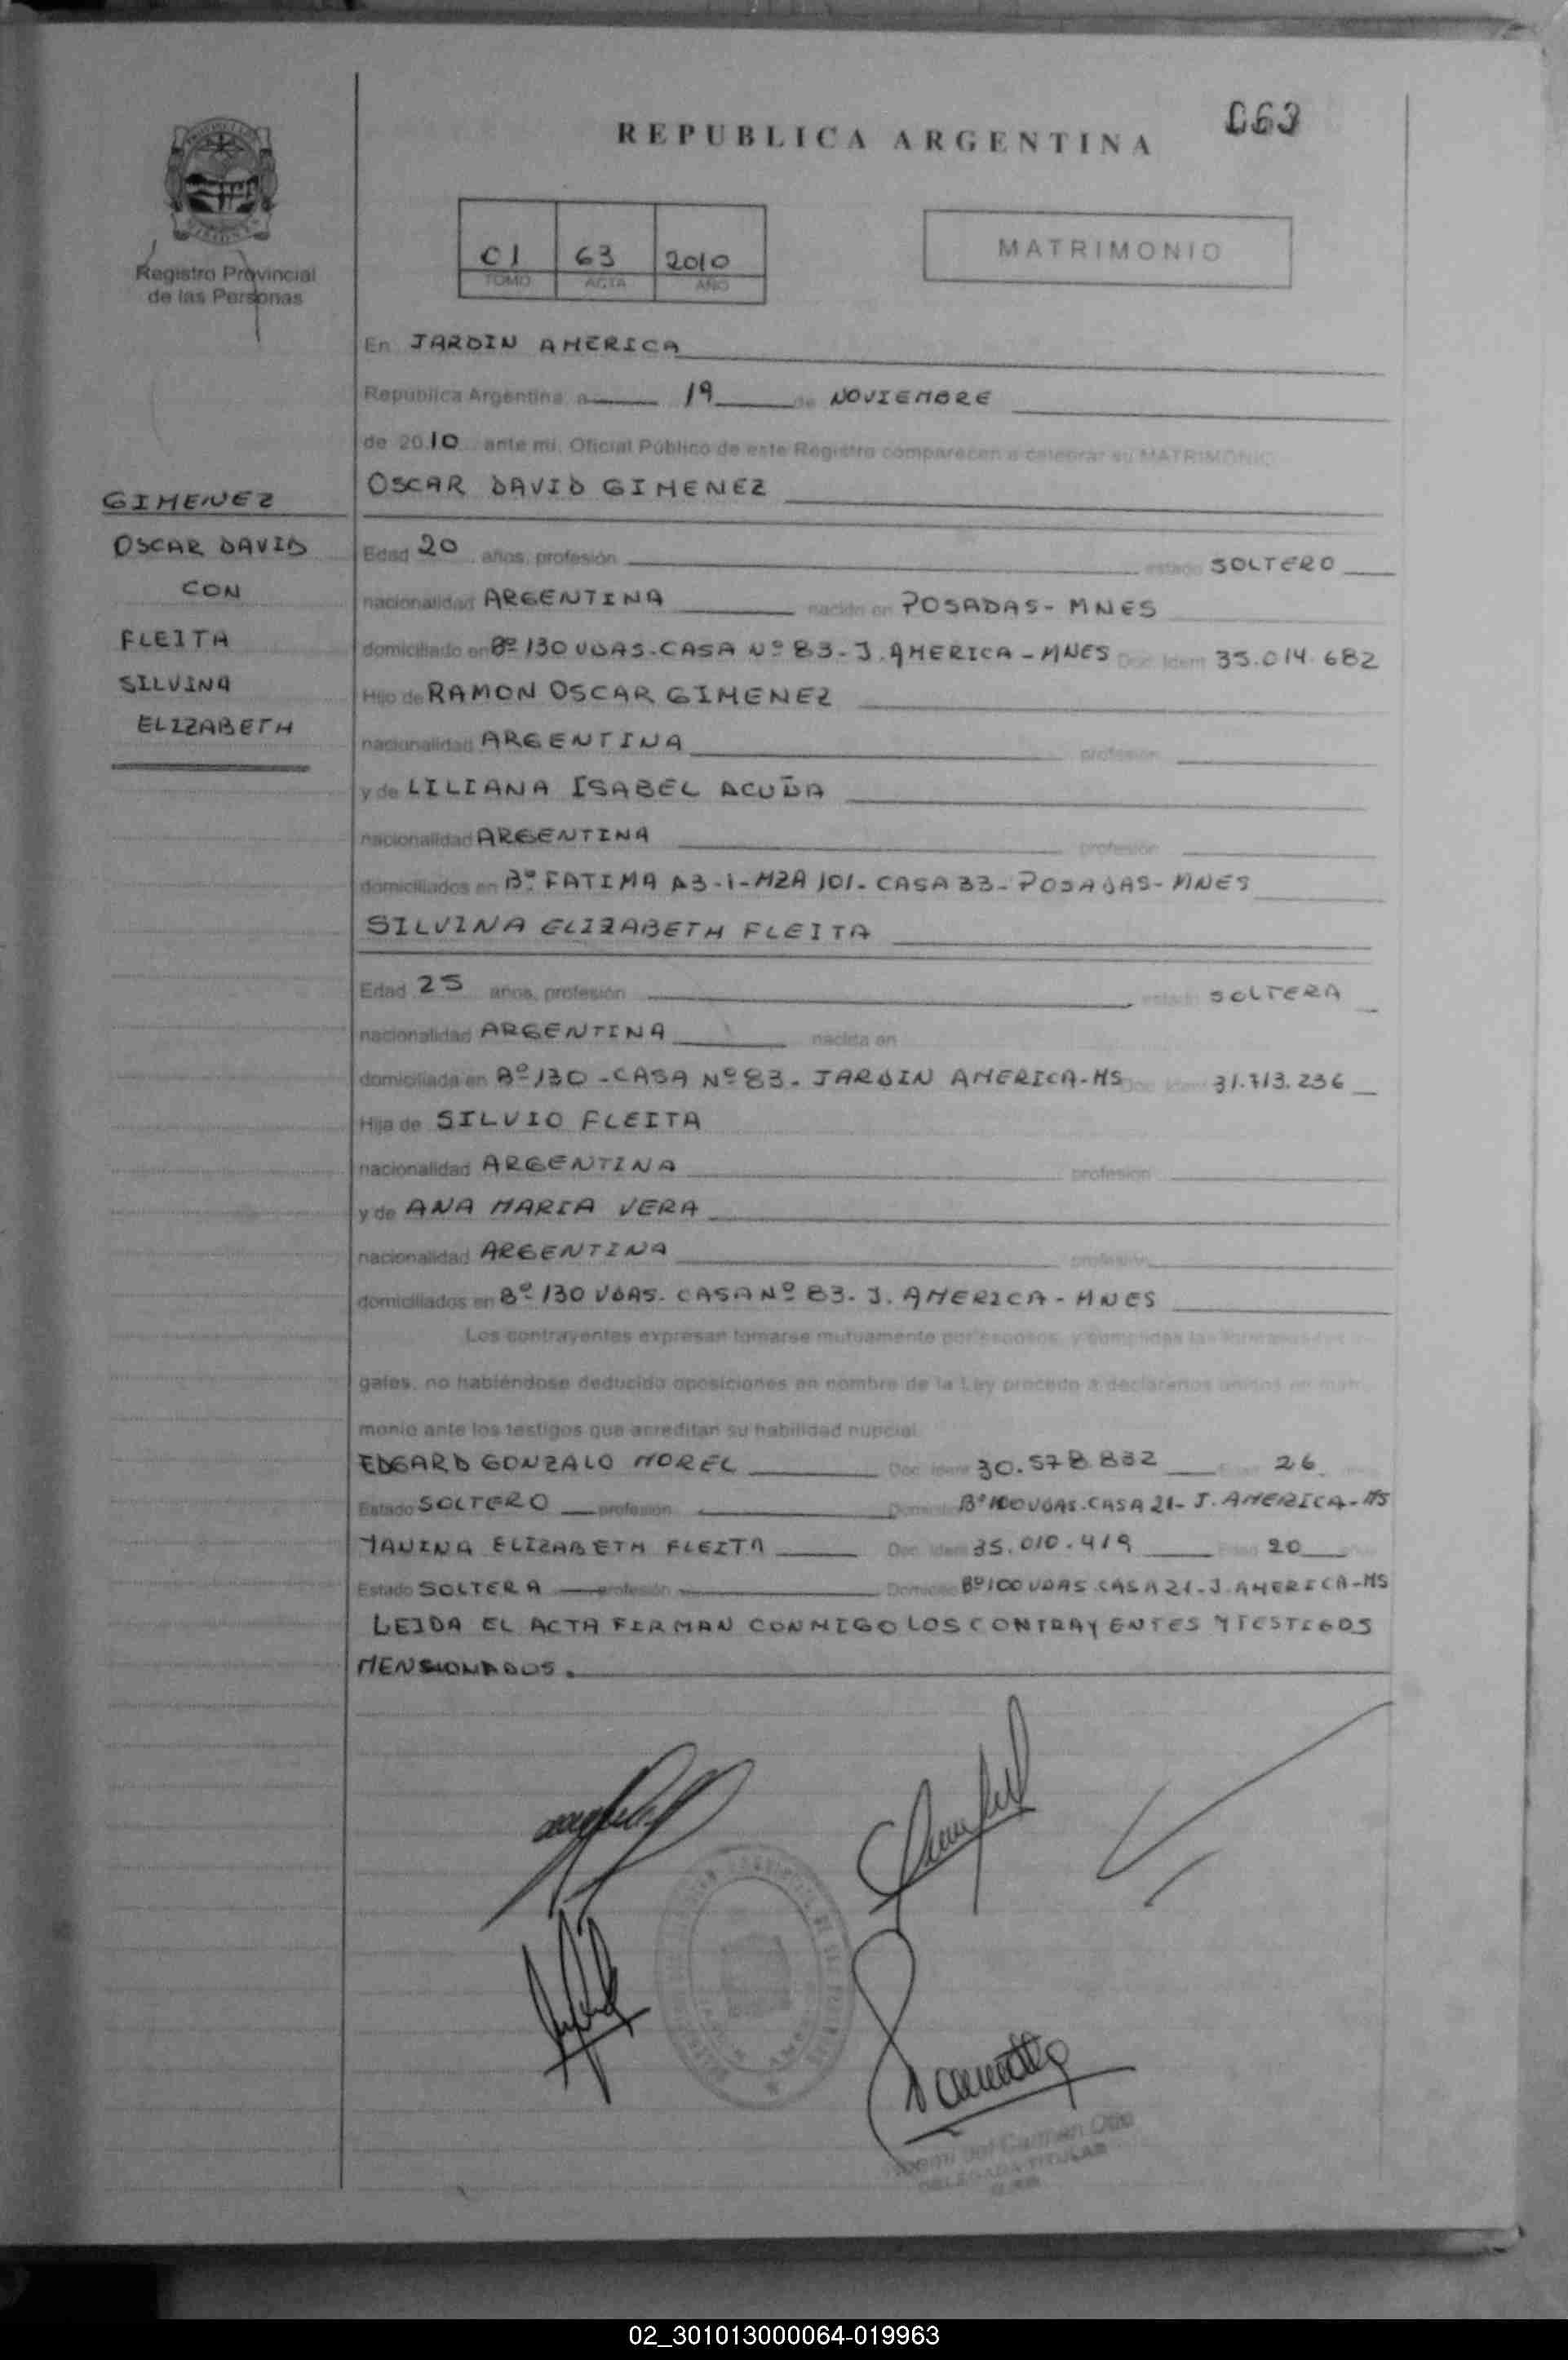 063
REPUBLICA ARGENTINA
Registro Provincial
de las Personas
01 63 2010
TOMO ACTA AÑO
MATRIMONIO
En JARDIN AMERICA
República Argentina, a 19 de NOVIEMBRE
de 2010 ante mi, Oficial Público de este Registro comparecen a celebrar su MATRIMONIO
GIMENEZ
OSCAR DAVID
CON
FLEITA
SILVINA
ELIZABETH
OSCAR DAVID GIMENEZ
Edad 20 años, profesión estado SOLTERO
nacionalidad ARGENTINA nacido en POSADAS - MNES
domiciliado en Bº 130 VDAS - CASA Nº 83 - J. AMERICA - MNES Doc. Ident. 35.014.682
Hijo de RAMON OSCAR GIMENEZ
nacionalidad ARGENTINA profesión
y de LILIANA ISABEL ACUÑA
nacionalidad ARGENTINA profesión
domiciliados en Bº FATIMA A3-1-MZA 101 - CASA 33 - POSADAS - MNES
SILVINA ELIZABETH FLEITA
Edad 25 años, profesión estado SOLTERA
nacionalidad ARGENTINA nacida en
domiciliada en Bº 130 - CASA Nº 83 - JARDIN AMERICA - MS Doc. Ident. 31.713.236
Hija de SILVIO FLEITA
nacionalidad ARGENTINA profesión
y de ANA MARIA VERA
nacionalidad ARGENTINA profesión
domiciliados en Bº 130 VDAS. CASA Nº 83 - J. AMERICA - MNES
Los contrayentes expresan tomarse mutuamente por esposos, y cumplidas las
gales, no habiéndose deducido oposiciones en nombre de la Ley procedo a declararlos unidos en matri-
monio ante los testigos que acreditan su habilidad nupcial.
EDGARD GONZALO MOREL Doc. Ident. 30.578.832 Edad 26
Estado SOLTERO profesión Domicilio Bº 100 VDAS. CASA 21 - J. AMERICA - MS
YANINA ELIZABETH FLEITA Doc. Ident. 35.010.419 Edad 20 años
Estado SOLTERA profesión Domicilio Bº 100 VDAS. CASA 21 - J. AMERICA - MS
LEIDA EL ACTA FIRMAN CONMIGO LOS CONTRAYENTES Y TESTIGOS
MENSIONADOS.
DELEGADA TITULAR
02_301013000064-019963